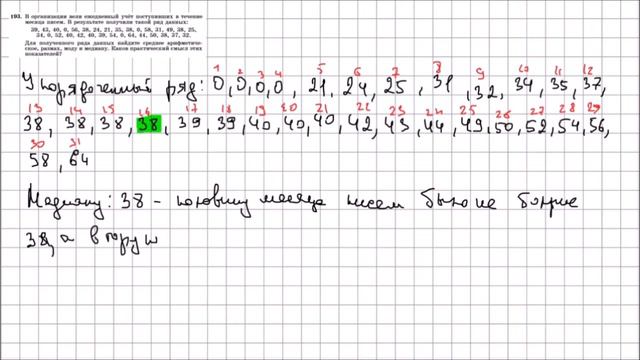 193. В организации вели ежедневный учёт поступивших в течение
месяца писем. В результате получили такой ряд данных:
39, 43, 40, 0, 56, 38, 24, 21, 35, 38, 0, 58, 31, 49, 38, 25,
34, 0, 52, 40, 42, 40, 39, 54, 0, 64, 44, 50, 38, 37, 32.
Для полученного ряда данных найдите среднее арифметичес-
кое, размах, моду и медиану. Каков практический смысл этих
показателей?
1 2 3 4 5 6 7 8 9 10 11 12
Упорядоченный ряд: 0, 0, 0, 0, 21, 24, 25, 31, 32, 34, 35, 37,
13 14 15 16 17 18 19 20 21 22 23 24 25 26 27 28 29
38, 38, 38, 38, 39, 39, 40, 40, 40, 42, 43, 44, 49, 50, 52, 54, 56,
30 31
58, 64
Медиану: 38 - половину месяца писем было не более
38, а вторую